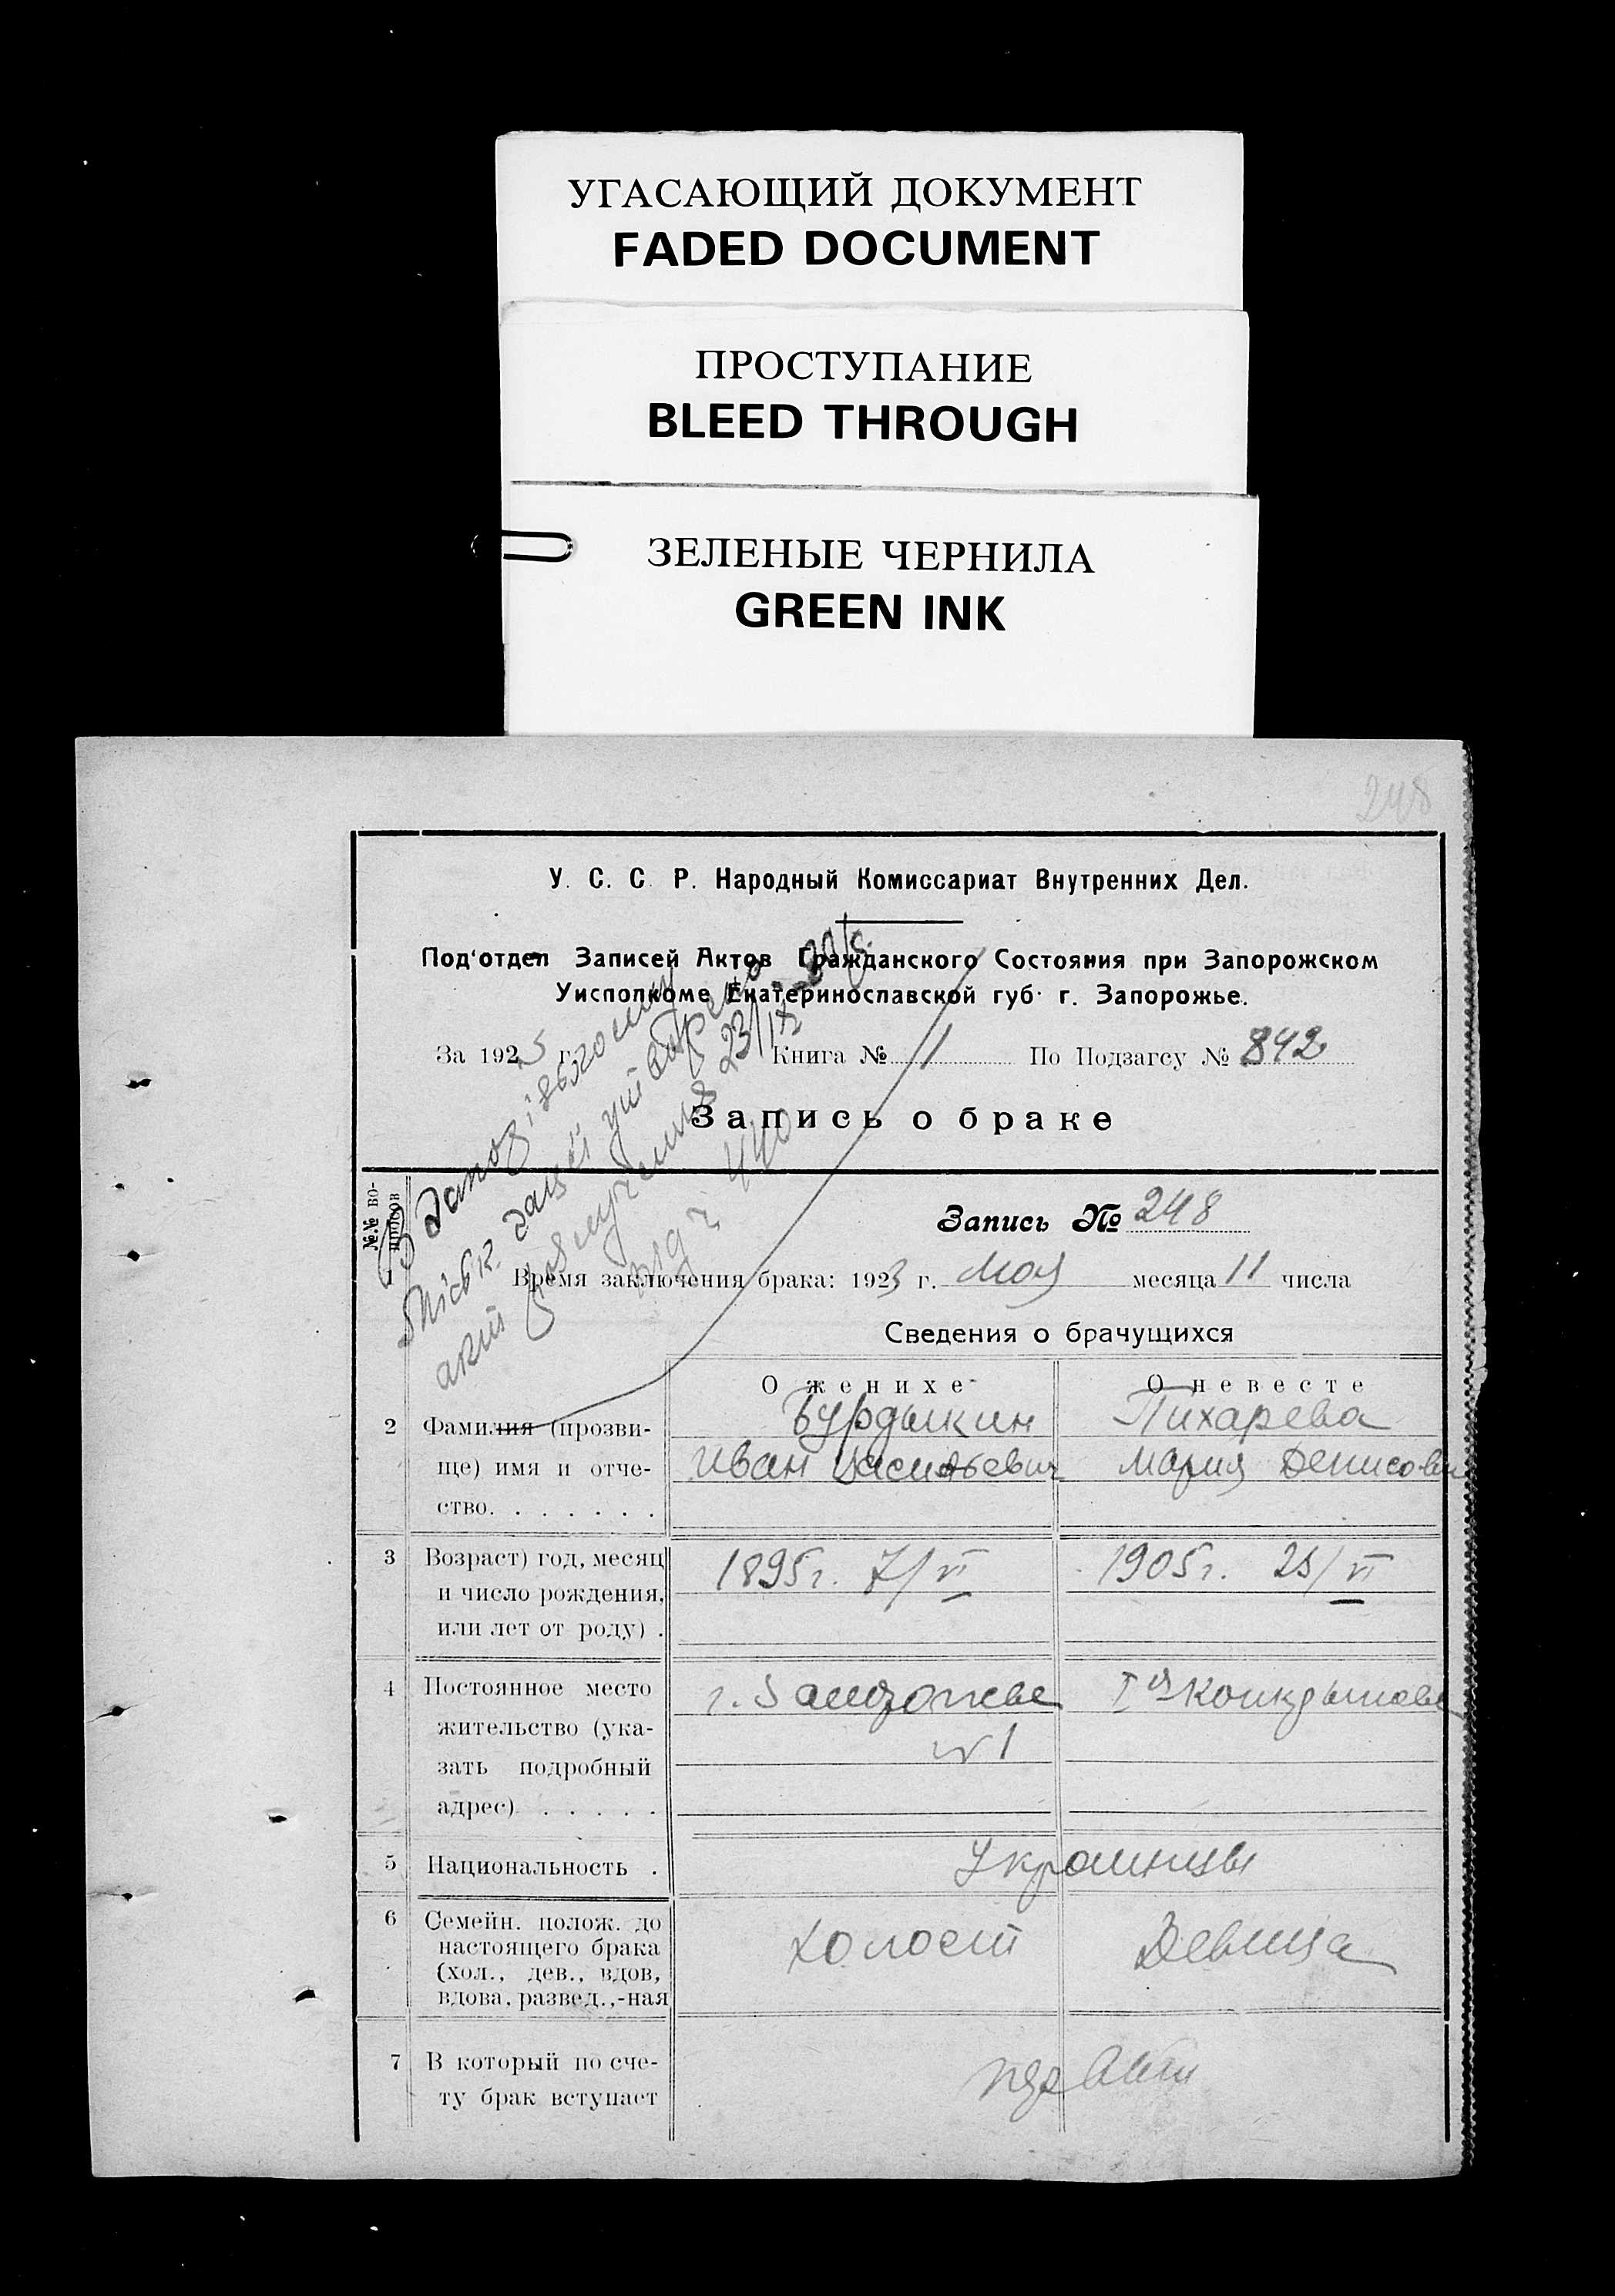 УГАСАЮЩИЙ ДОКУМЕНТ
FADED DOCUMENT
ПРОСТУПАНИЕ
BLEED THROUGH
ЗЕЛЕНЫЕ ЧЕРНИЛА
GREEN INK
248
У. С. С. Р. Народный Комиссариат Внутренних Дел.
Под'отдел Записей Актов Гражданского Состояния при Запорожском
Уисполкоме Екатеринославской губ. г. Запорожье.
За 1923 г. Книга № 1 По Подзагсу № 842
Запись о браке
№№ вопросов
Запись № 248
1 Время заключения брака: 1923 г. Мая месяца 11 числа
Сведения о брачущихся
О женихе О невесте
2 Фамилия (прозви- Бурдыкин Пихарева
ще) имя и отче- Иван Васильевич Мария Денисовн
ство. . . . . . .
3 Возраст) год, месяц 1895 г. 7/VI 1905 г. 25/VI
и число рождения,
или лет от роду) .
4 Постоянное место г. Запорожье
жительство (ука- № 1
зать подробный
адрес) . . . . .
5 Национальность . Украинцы
6 Семейн. полож. до холост Девица
настоящего брака
(хол., дев., вдов,
вдова, развед.,-ная
7 В который по сче-
ту брак вступает